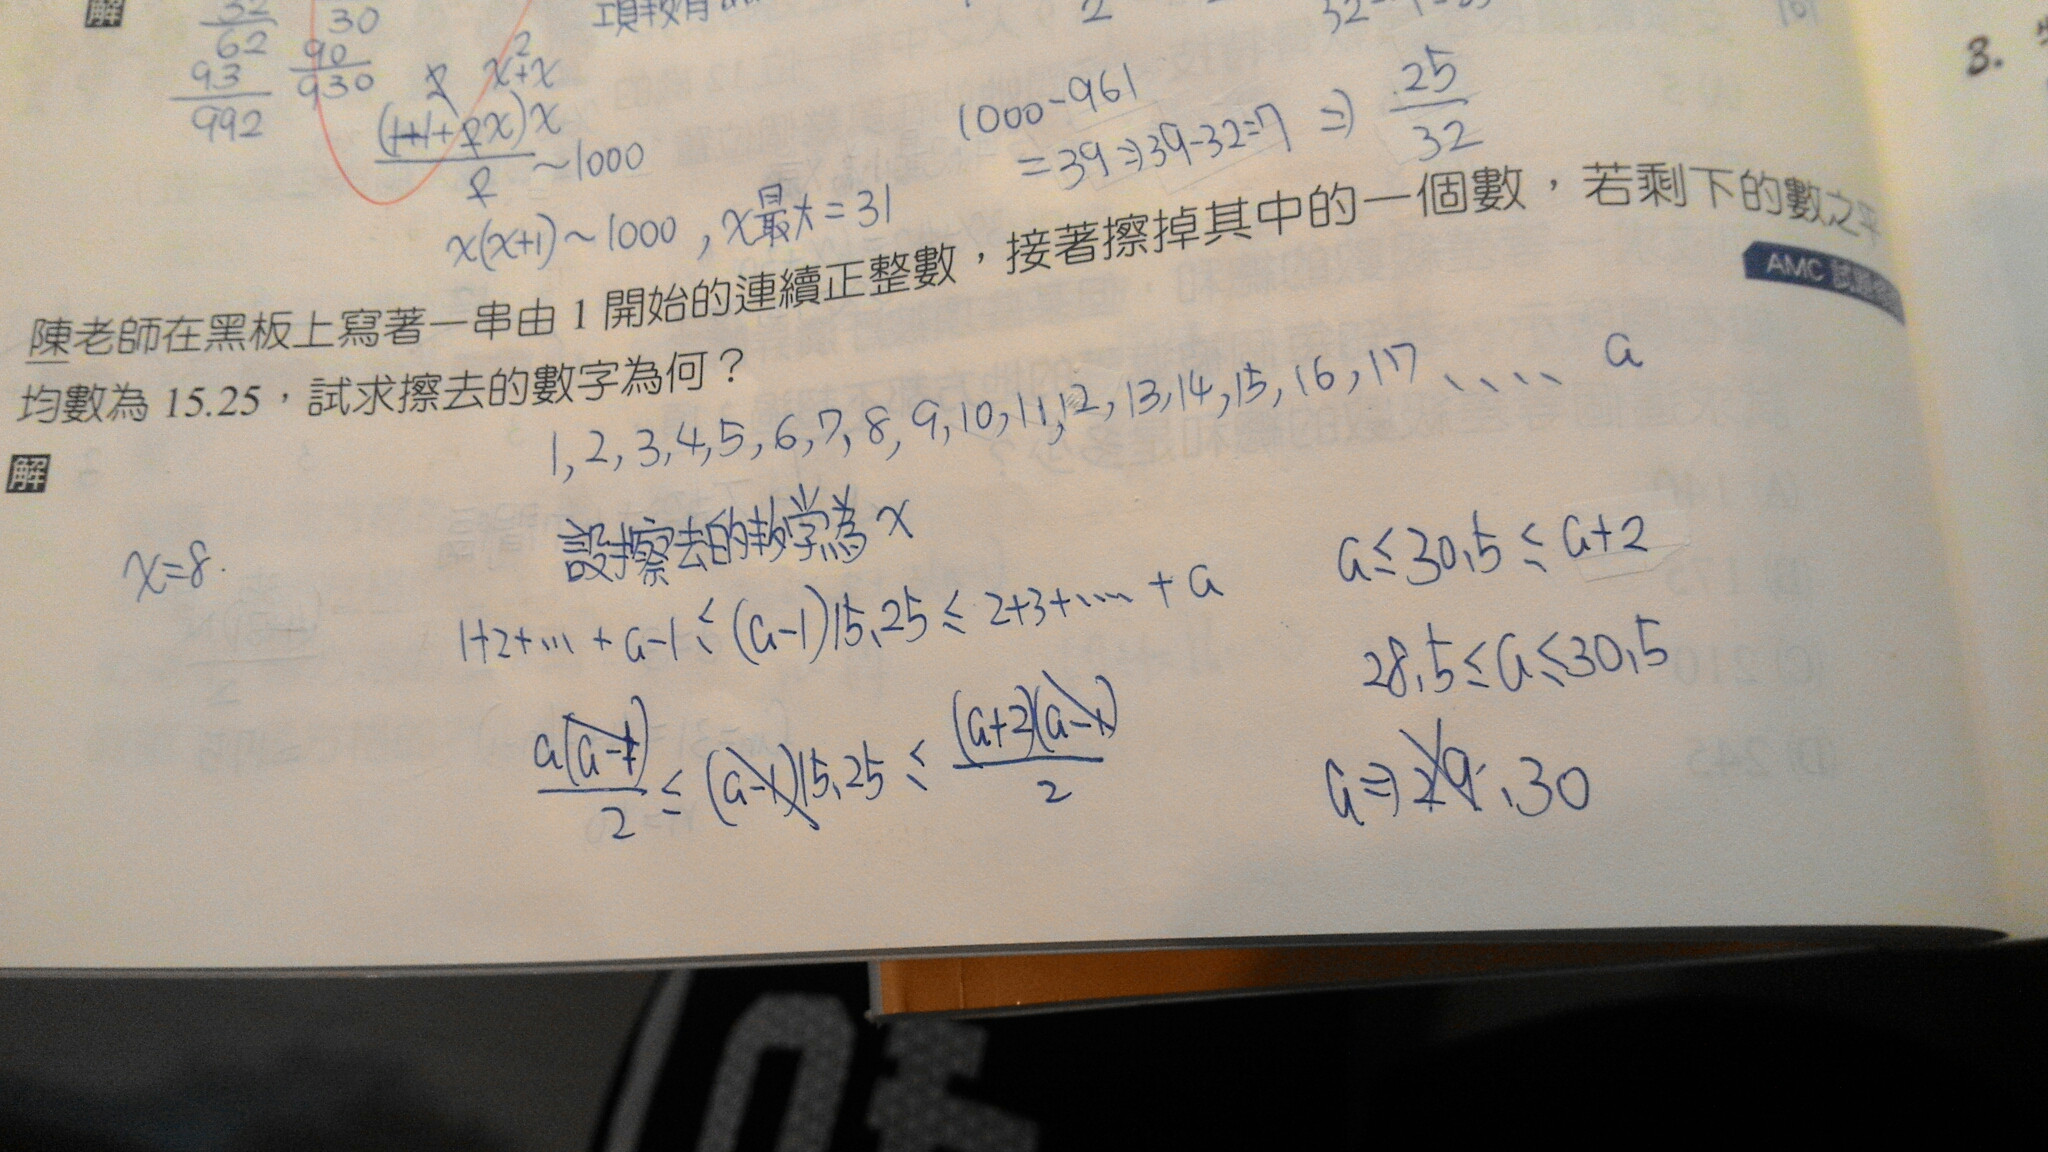 解
32
62
93
992
30
90
930
x²+x
2
(1+1+2x)x
2
~1000
x(x+1)~1000，x最大=31
2
1000-961
=39⇒39-32=7 ⇒ 25/32
3.
陳老師在黑板上寫著一串由 1 開始的連續正整數，接著擦掉其中的一個數，若剩下的數之平
均數為 15.25，試求擦去的數字為何？
AMC
解
1,2,3,4,5,6,7,8,9,10,11,12,13,14,15,16,17、、、、 a
設擦去的數字為x
x=8.
1+2+…+a-1≤(a-1)15.25≤2+3+……+a
a(a-1)/2≤(a-1)15.25≤(a+2)(a-1)/2
a≤30.5≤a+2
28.5≤a≤30.5
a⇒29、30